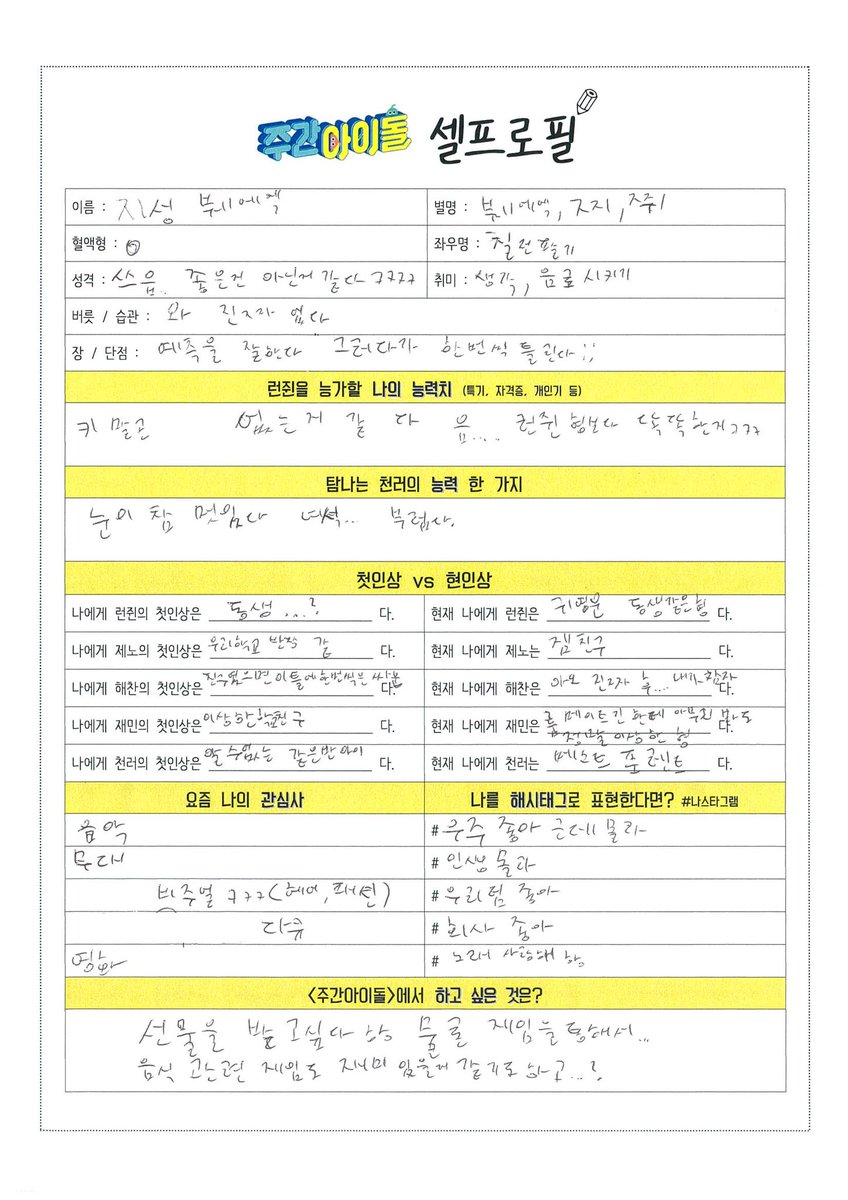 주간아이돌 셀프로필
이름 : 지성 뷔에엑
별명 : 뷔에엑, 지지, 쥐
혈액형 : O
좌우명 : 칠런 팔기
성격 : 쓰읍.. 좋은건 아닌거 같다 ㅋㅋㅋㅋ
취미 : 생각, 음료 시키기
버릇 / 습관 : 와 진짜 없다
장 / 단점 : 예측을 잘한다 그러다가 한번씩 틀린다;;
런쥔을 능가할 나의 능력치 (특기, 자격증, 개인기 등)
키 말곤 없는거 같다 음.... 런쥔형보다 똑똑한지ㅋㅋㅋ
탐나는 천러의 능력 한 가지
눈이 참 멋있다 녀석... 부럽다.
첫인상 vs 현인상
나에게 런쥔의 첫인상은 동생...? 다.
현재 나에게 런쥔은 귀명분 동생같은형 다.
나에게 제노의 첫인상은 우리학교 반장 같 다.
현재 나에게 제노는 찐친구 다.
나에게 해찬의 첫인상은 진수없으면 이틀에 한번씩은 싸움 다.
현재 나에게 해찬은 아오 진짜 후.... 내가참자 다.
나에게 재민의 첫인상은 이상한 친구 다.
현재 나에게 재민은 룸메이트긴 한데 아무튼 봐도
정말 이상한 형 다.
나에게 천러의 첫인상은 알 수없는 같은반아이 다.
현재 나에게 천러는 베스트 프렌드 다.
요즘 나의 관심사
나를 해시태그로 표현한다면? #나스타그램
음악
# 우주 좋아 근데 몰라
무대
# 인생 몰라
비주얼 ㅋㅋㅋ (헤어, 패션)
# 우리팀 좋아
다큐
# 회사 좋아
영화
# 노래 사랑해 핳
<주간아이돌>에서 하고 싶은 것은?
선물을 받고싶다 핳 물론 게임을 통해서...
음식 관련 게임도 재미 있을거 같기도 하고...?